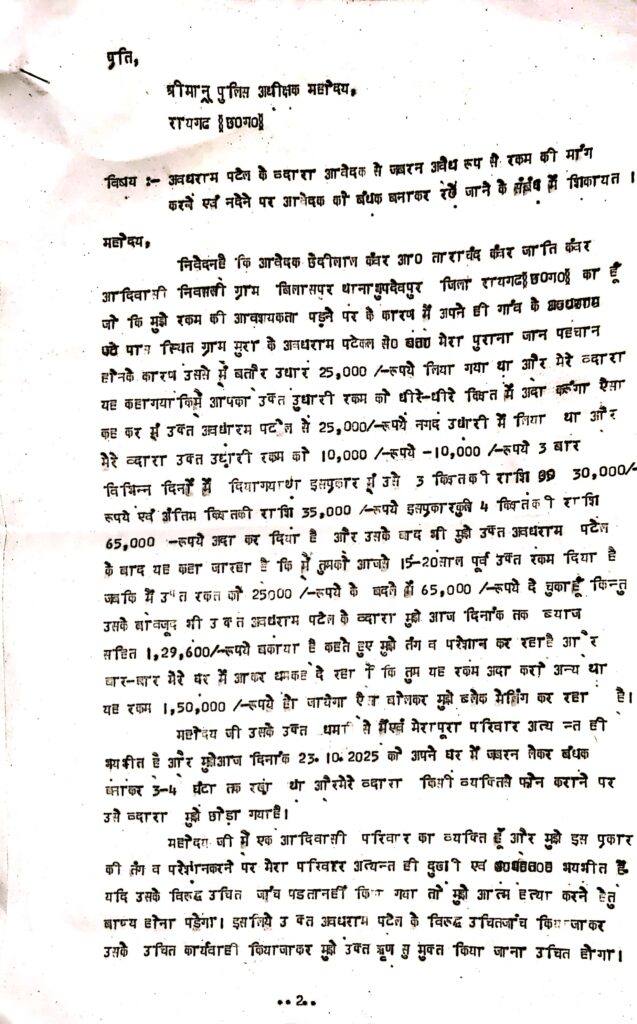 प्रति,
श्रीमान् पुलिस अधीक्षक महोदय,
रायगढ §छ0ग0§
विषय :- अवधराम पटेल के व्दारा आवेदक से जबरन अवैध रूप से रकम की मांग
करने एवं नदेने पर आवेदक को बंधक बनाकर रखे जाने के संबंध में शिकायत ।
महोदय,
निवेदनहै कि आवेदक छेदीलाल कंवर आ0 ताराचंद कंवर जाति कंवर
आदिवासी निवासी ग्राम बिलासपर थानाभुपदेवपुर जिला रायगढ§छ0ग0§ का हूँ
जो कि मुझे रकम की आवश्यकता पड़ने पर के कारण में अपने ही गांव के
पास स्थित ग्राम मुरा के अवधराम पटेवल से0 मेरा पुराना जान पहचान
होनके कारण उससे में बतौर उधार 25,000 /-रूपये लिया गया था और मेरे व्दारा
यह कहागया किमें आपका उक्त उधारी रकम को धीरे-धीरे किश्त में अदा करूंगा ऐसा
कह कर मूं उक्त अवधारम पटेल से 25,000/-रूपये नगद उधारी में लिया था और
मेरे व्दारा उक्त उधारी रकम को 10,000 /-रूपये -10,000 /-रूपये 3 बार
विभिन्न दिनों में दियागयाथा इसप्रकार मूं उसे 3 किश्तकी राशि 30,000/-
रूपये एवं अंतिम किश्तकी राशि 35,000 /-रूपये इसप्रकारकुल 4 किश्तकी राशि
65,000 -रूपये अदा कर दिया है और उसके बाद भी मुझे उक्त अवधराम पटेल
के बाद यह कहा जारहा है कि में तुमको आजसे 15-20साल पूर्व उक्त रकम दिया है
जबकि में उक्त रकत को 25000 /-रूपये के बदले में 65,000 /-रूपये दे चुकाहूँ किन्तु
उसके बावजूद भी उक्त अवधराम पटेल के व्दारा मुझे आज दिनांक तक ब्याज
सहित 1,29,600/-रूपये बकाया है कहते हुए मुझे तंग व परेशान कर रहाहै और
बार-बार मेरे घर में आकर धमकह दे रहा कि तुम यह रकम अदा करो अन्य था
यह रकम 1,50,000 /-रूपये हो जायेगा ऐसा बोलकर मुझे ब्लेक मेलिंग कर रहा है।
महोदय जी उसके उक्त धमकी से मैंएवं मेरापूरा परिवार अत्य न्त ही
भयभीत है और मुझेआज दिनांक 23.10.2025 को अपने घर में जबरन लेकर बंधक
बनाकर 3-4 घंटा तक रखा था औरमेरे व्दारा किसी व्यक्तिसे फोन कराने पर
उसे व्दारा मुझे छोड़ा गयाहै।
महोदय जी में एक आदिवासी परिवार का व्यक्ति हूँ और मुझे इस प्रकार
की तंग व परेशानकरने पर मेरा परिवार अत्यन्त ही दुखी एवं भयभीत है,
यदि उसके विरूद्ध उचित जांच पडतानहीं किया गया तो मुझे आत्म हत्या करने हेतु
बाध्य होना पड़ेगा। इसलिये उक्त अवधराम पटेल के विरूद्ध उचितजांच कियाजाकर
उसके उचित कार्यवाही कियाजाकर मुझे उक्त ऋण सु मुक्त किया जाना उचित होगा।
..2..